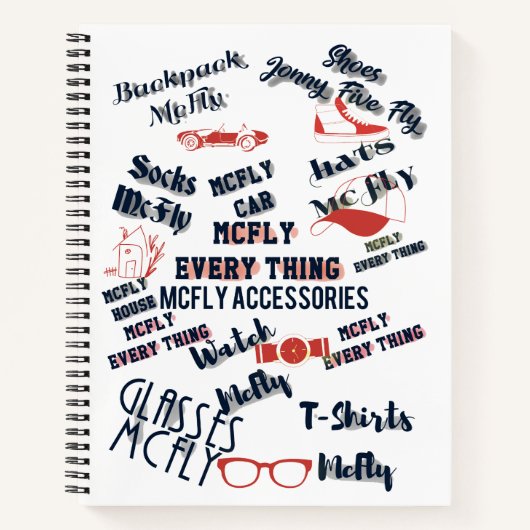 Backpack
McFly
Shoes
Jonny Five Fly
Socks
McFly
McFly
Car
hats
McFly
McFly
Every Thing
McFly
Every Thing
McFly
House
McFly Accessories
McFly
Every Thing
Watch
McFly
McFly
Every Thing
Glasses
McFly
T-Shirts
McFly